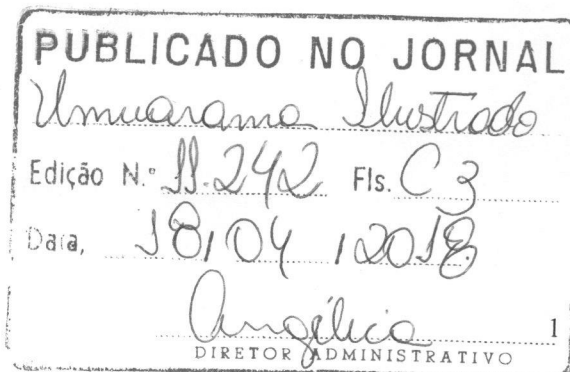 PUBLICADO NO JORNAL
Umuarama Ilustrado
Edição N.º 11.242 Fls. C3
Data, 18/04/2018
Angélica
1
DIRETOR ADMINISTRATIVO